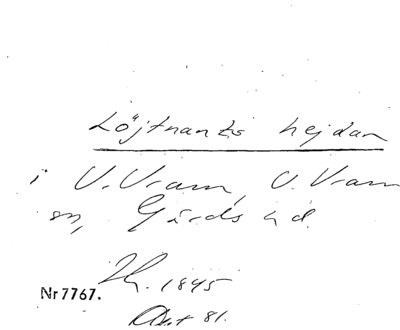 Löjtnants hejdan
i V. Vram, V. Vram
sn, Gärds hd.
1845
Nr 7767.
Akt 81.